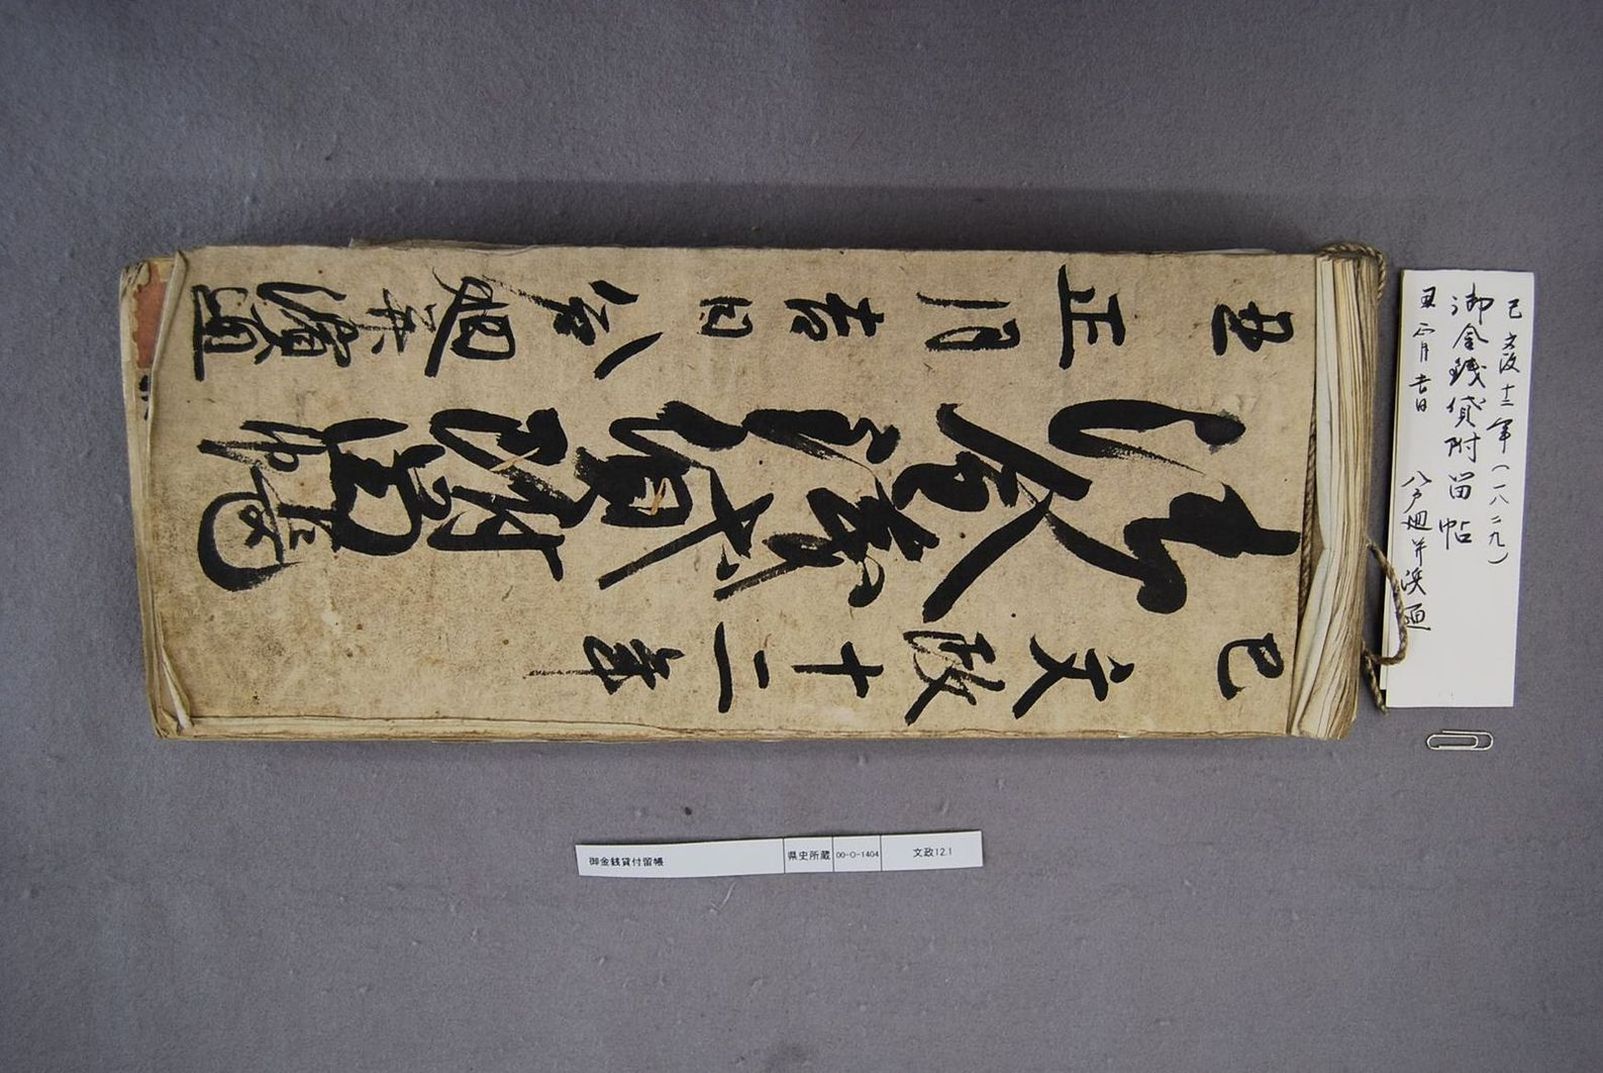 己 文政十二年
御金銭貸附留帳
丑 正月吉日 八戸廻并濱通
己 文政十二年(一八二九)
御金銭貸附留帖
丑 正月吉日 八戸廻并浜通
御金銭貸付留帳 県史所蔵 00-O-1404 文政12.1